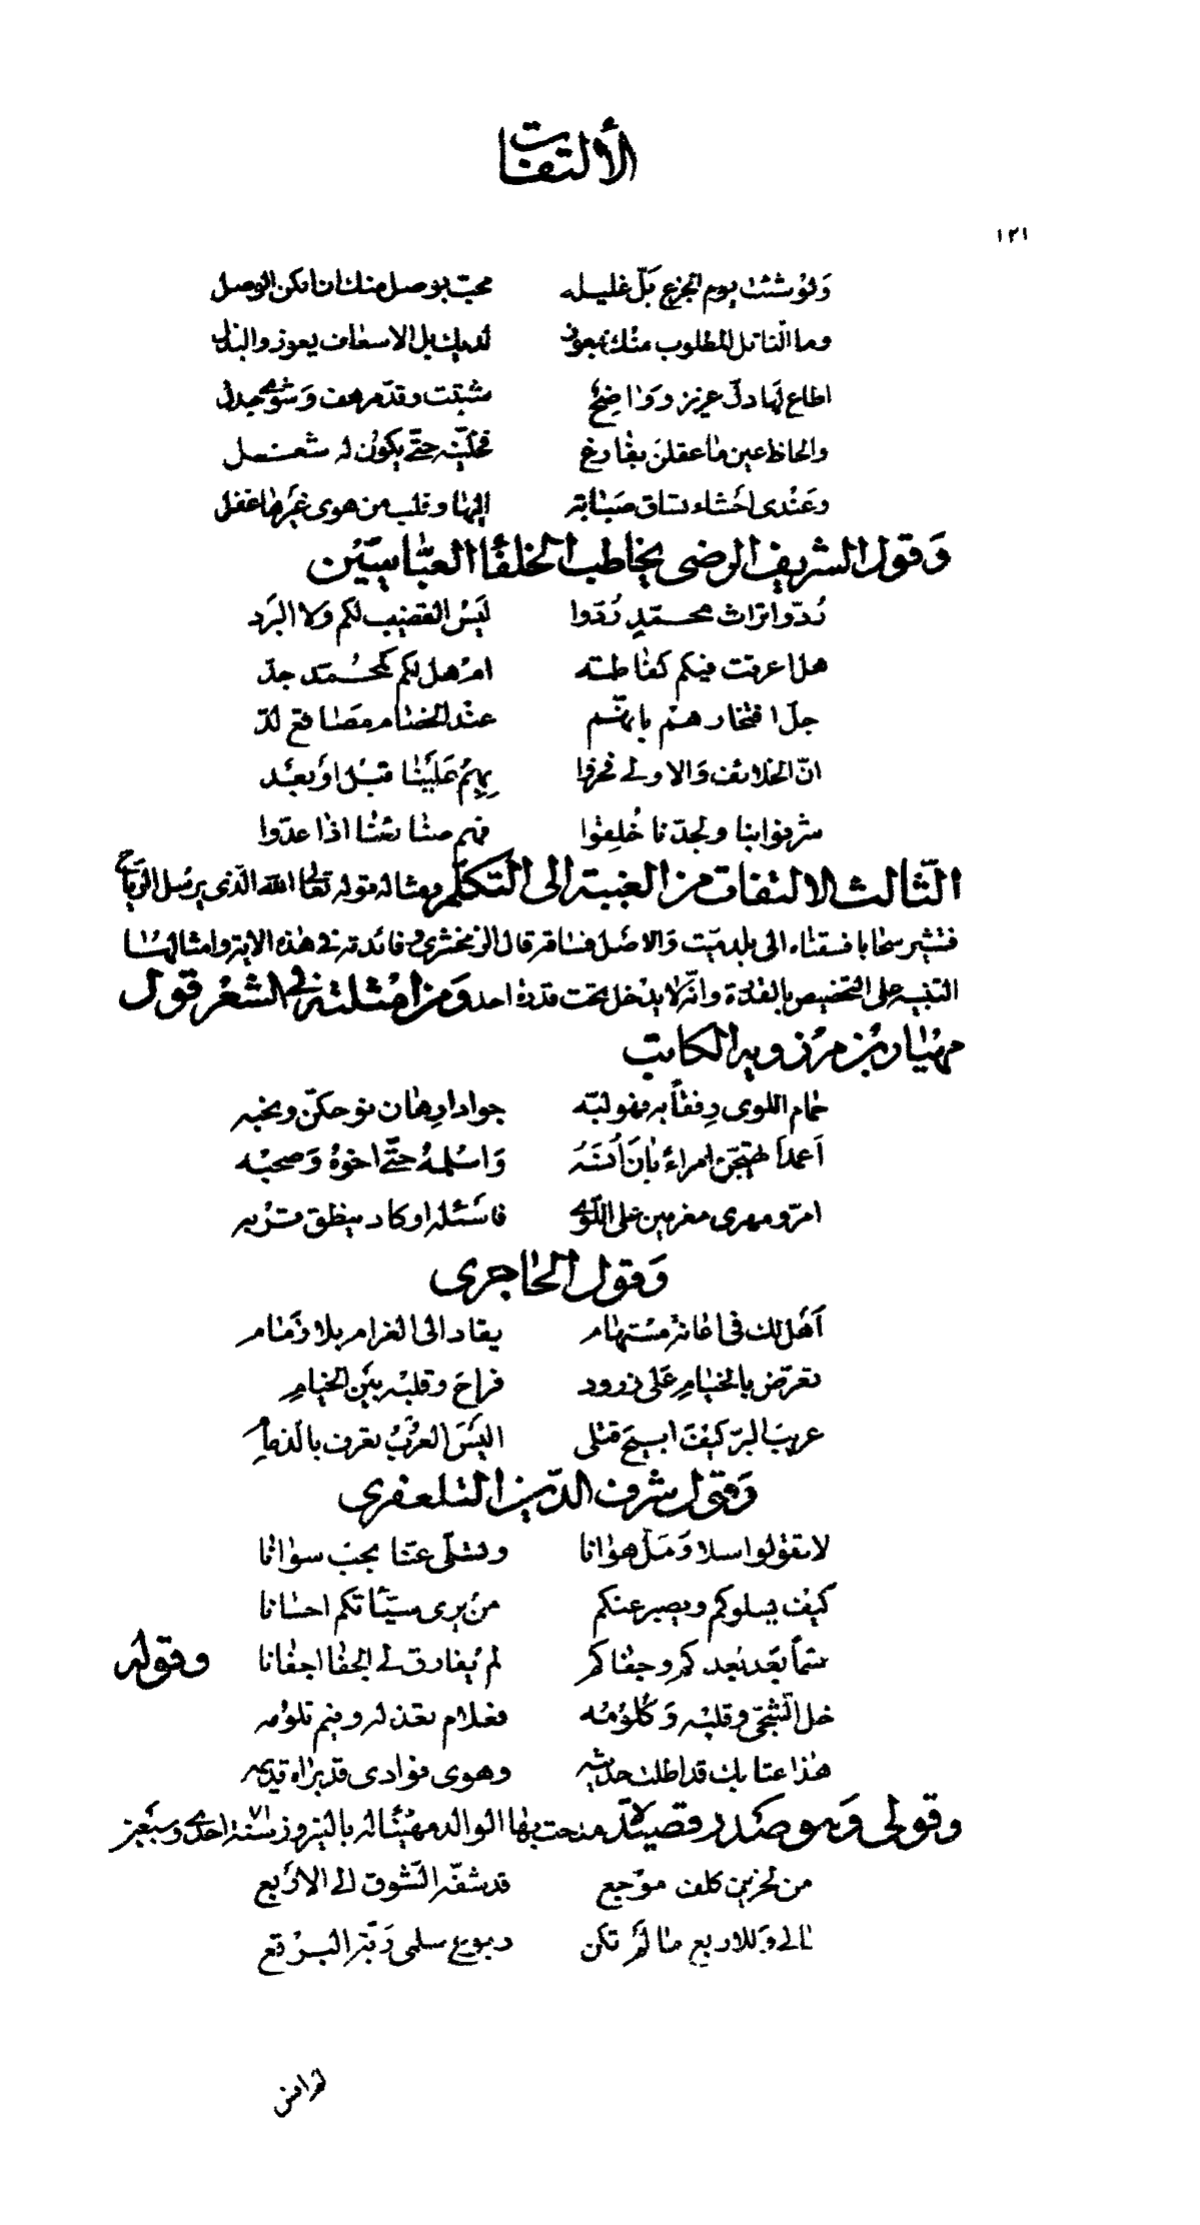 الألتفات
١٢١
ولو شئت يوم الجزع بلّ غليله محبّ بوصل منك ان امكن الوصل
وما النائل المطلوب منك بمعوز لديك بل الاسعاف يعوز والبذل
اطاع لها دلّ عزيز وواضح شتيت وقدّ مرهف وشوى جدل
والحاظ عين ما عقلن بفارغ فخلّينه حتّى يكون له شغل
وعندى احشاء تساق صبابة اليها وقلب من هوى غيرها غفل
وقول الشريف الرضى يخاطب الخلفا العبّاسيّين
ردّوا تراث محمّد ردّوا ليس القضيب لكم ولا البرد
هلا عرقت فيكم كفاطمة ام هل لكم كمحمّد جدّ
جلّ افتخارهم بانهّم عند الخصام مصاقع لدّ
انّ الخلائف والاولى فخروا بهم علينا قبل او بعد
شرفوا بنا ولجدّنا خلقوا فهم صنائعنا اذا عدّوا
الثّالث الالتفات من الغيبة الى التكلّم ومثاله قوله تعالى الله الّذى يرسل الرّياح
فتثير سحابا فسقناه الى بلد ميّت والاصل فساقه قال الزمخشرى وفائدته فى هذه الاية وامثالها
التنبيه على التخصيص بالقدرة وانّه لا يدخل تحت قدرة احد ومن امثلته فى الشعر قول
مهيار بن مرزويه الكاتب
حمام اللوى رفقاً به فهو لبّه جوادا رهان نوحكنّ ونحبه
أعمداً تهيّجن امراءً بان أنسه واسلمهُ حتّى اخوهُ وصحبه
امرّ ومهرى مغرمين على اللّوى فاسئله او كاد ينطق تربه
وقول الحاجرى
أهل لك فى اغاثة مستهام يقاد الى الغرام بلا زمام
تعرّض بالخيام على زرود فراح وقلبه بين الخيام
عريب البرّ كيف ابيح قتلى اليس العرب تعرف بالذمام
وقول شرف الدّين التلعفرى
لا تقولوا سلا وملّ هوانا وتسلّى عنّا بحبّ سوانا
كيف يسلوكم ويصبر عنكم من يرى سيّئاتكم احسانا
قسماً بعد بعدكم وجفاكم لم يفارق لى الجفا اجفانا وقوله
خل الشّجى وقلبه وكلومه فعلام تعذله وفيم تلومه
هذا عتابك قد اطلت حديثه وهوى فوادى قد براه قديمه
وقولى وهو صدر قصيدة مدحت بها الوالد مهنّئا له بالنيروز سنة احدى وسبعين
من لحزين كلف موجع قد شفّه الشّوق الى الاربع
مالى وللاربع ما لم تكن ربوع سلمى ربّة البرقع